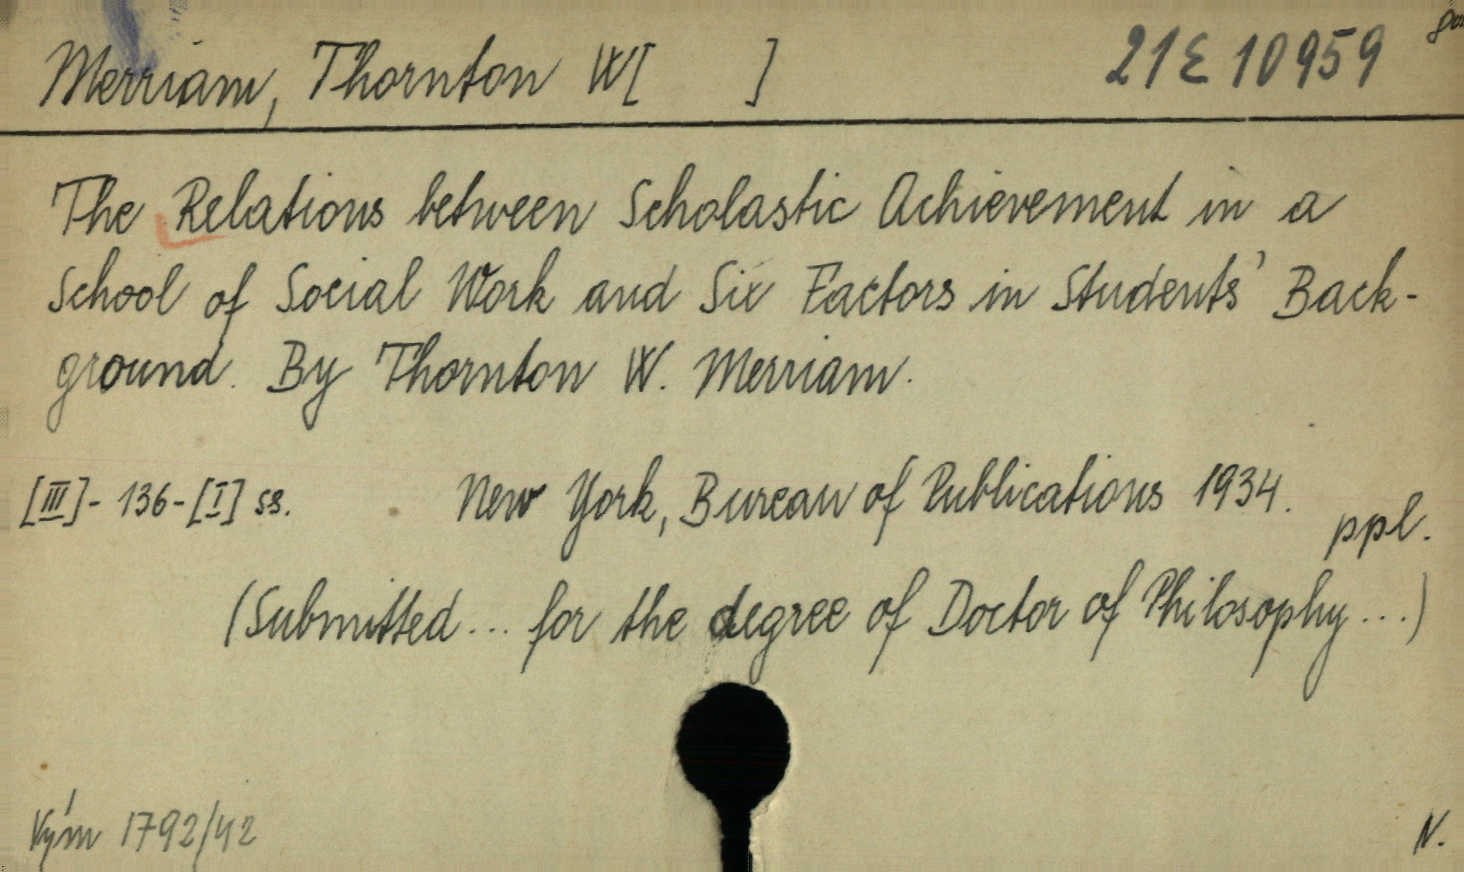 Merriam, Thornton W[ ] 21 E 10959
The Relations between Scholastic Achievement in a
School of Social Work and Six Factors in Students' Back-
ground. By Thornton W. Merriam.
[III]- 136-[I] ss. New York, Bureau of Publications 1934.
ppl.
(Submitted... for the degree of Doctor of Philosophy...)
Vým 1792/42 N.